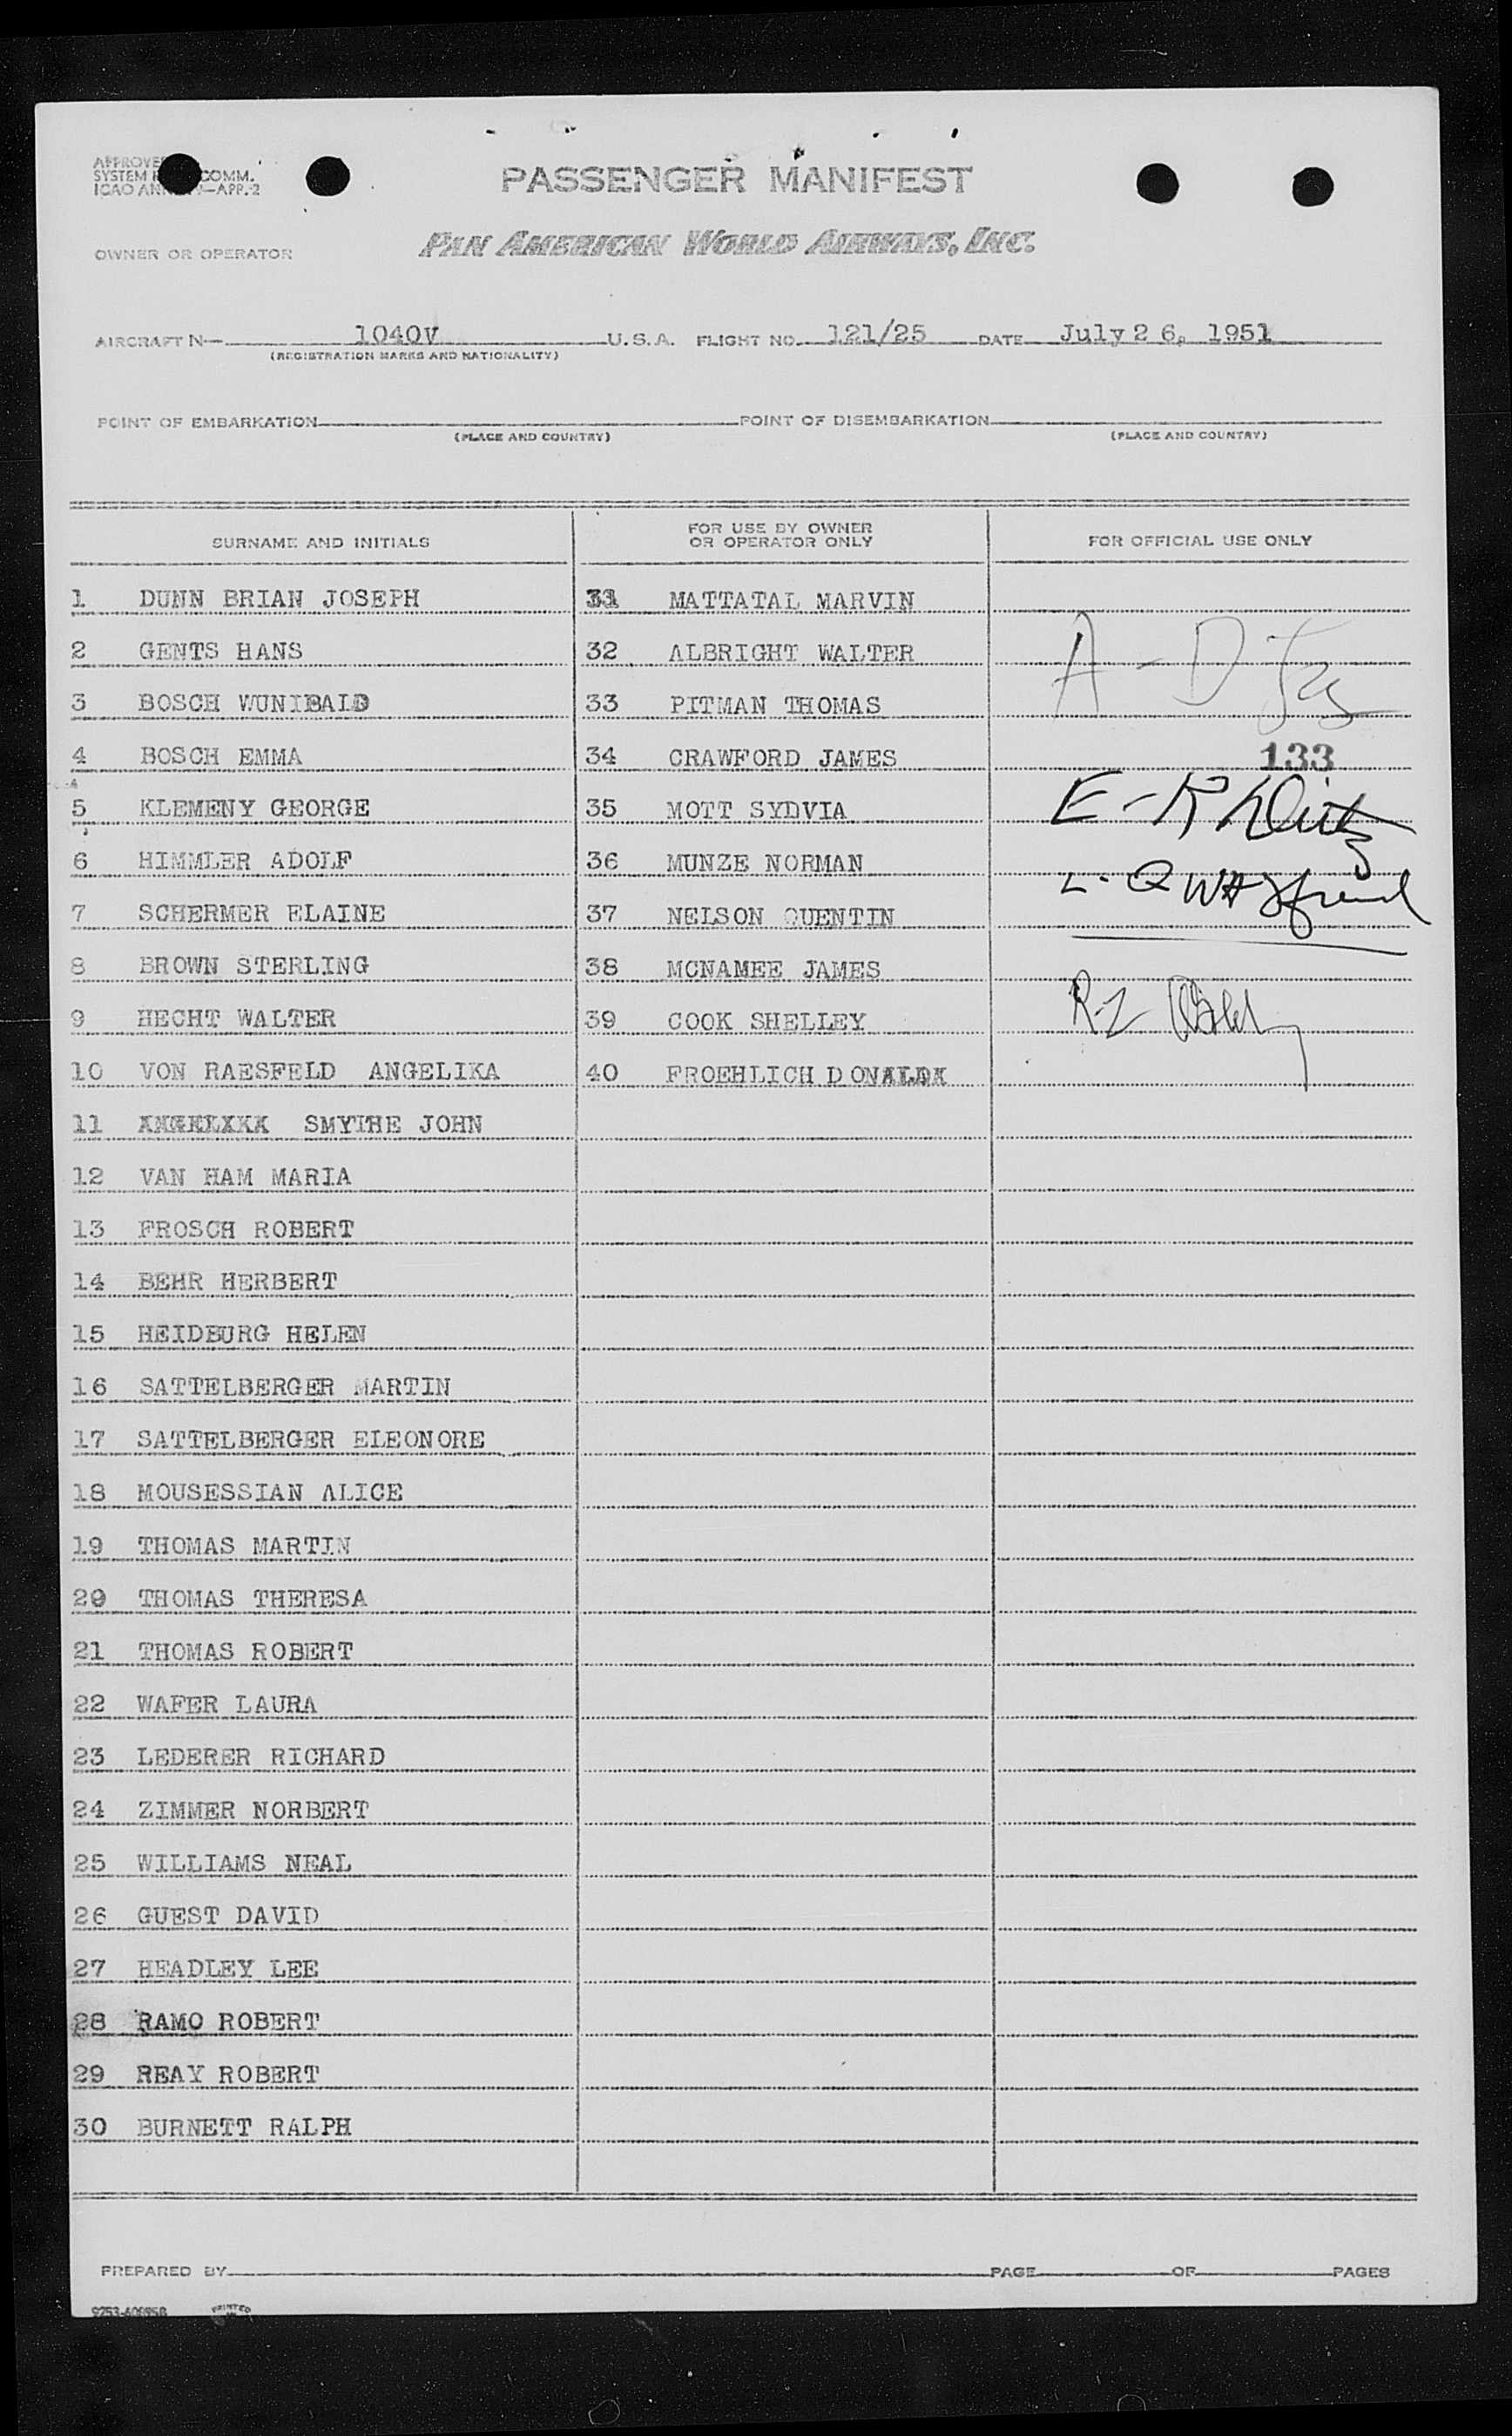 PASSENGER MANIFEST
SYSTEM COMM.
ICAO —APP. 2
OWNER OR OPERATOR PAN AMERICAN WORLD AIRWAYS, INC.
AIRCRAFT N— 1040V U.S.A. FLIGHT NO. 121/25 DATE July 2 6, 1951
(REGISTRATION MARKS AND NATIONALITY)
POINT OF EMBARKATION POINT OF DISEMBARKATION
(PLACE AND COUNTRY) (PLACE AND COUNTRY)
SURNAME AND INITIALS
1 DUNN BRIAN JOSEPH
2 GENTS HANS
3 BOSCH WUNIBALD
4 BOSCH EMMA
5 KLEMENY GEORGE
6 HIMMLER ADOLF
7 SCHERMER ELAINE
8 BROWN STERLING
9 HECHT WALTER
10 VON RAESFELD ANGELIKA
11 SMYTHE JOHN
12 VAN HAM MARIA
13 FROSCH ROBERT
14 BEHR HERBERT
15 HEIDBURG HELEN
16 SATTELBERGER MARTIN
17 SATTELBERGER ELEONORE
18 MOUSESSIAN ALICE
19 THOMAS MARTIN
20 THOMAS THERESA
21 THOMAS ROBERT
22 WAFER LAURA
23 LEDERER RICHARD
24 ZIMMER NORBERT
25 WILLIAMS NEAL
26 GUEST DAVID
27 HEADLEY LEE
28 RAMO ROBERT
29 REAY ROBERT
30 BURNETT RALPH
FOR USE BY OWNER
OR OPERATOR ONLY
31 MATTATAL MARVIN
32 ALBRIGHT WALTER
33 PITMAN THOMAS
34 CRAWFORD JAMES
35 MOTT SYDVIA
36 MUNZE NORMAN
37 NELSON QUENTIN
38 MCNAMEE JAMES
39 COOK SHELLEY
40 FROEHLICH DONALD
FOR OFFICIAL USE ONLY
A - D
133
E - K
L - Q
R-Z
PREPARED BY PAGE OF PAGES
PRINTED